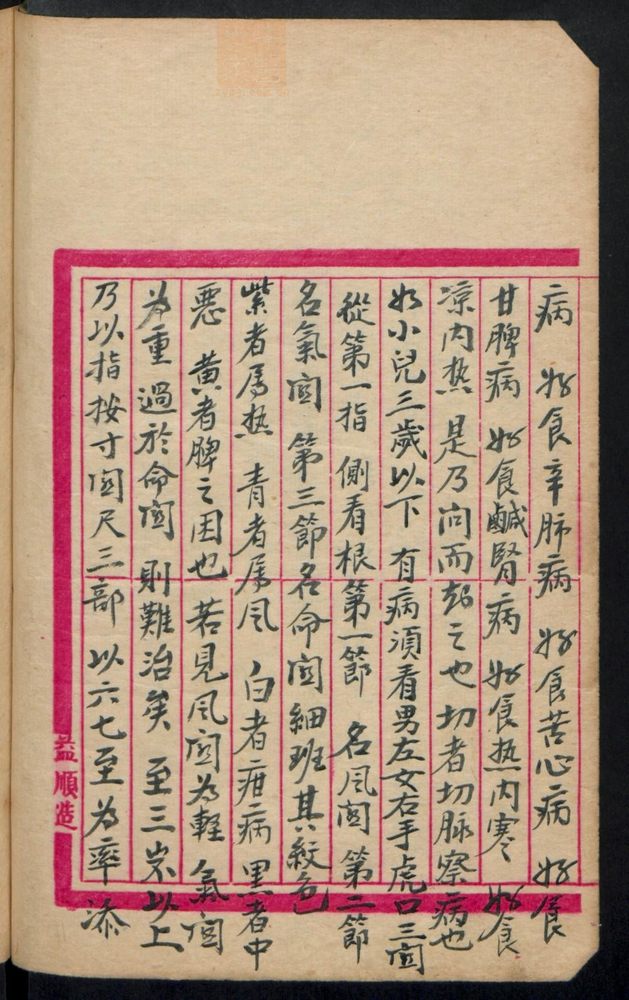 病 好食辛肺病 好食苦心病 好食
甘脾病 好食鹹腎病 好食热内寒 好食
凉内热 是乃问而知之也切者切脉察病也
如小兒三歲以下 有病湏看男左女右手虎口三関
從第一指 側看根第一節 名风関 第二節
名氣関 第三節名命関細班其紋色
紫者属热 青者属风 白者疳病 黒者中
惡 黄者脾之困也若見风関為軽 氣関
為重 過於命関 則難治矣 至三岁以上
乃以指按寸関尺三部 以六七至为率 添
益順造